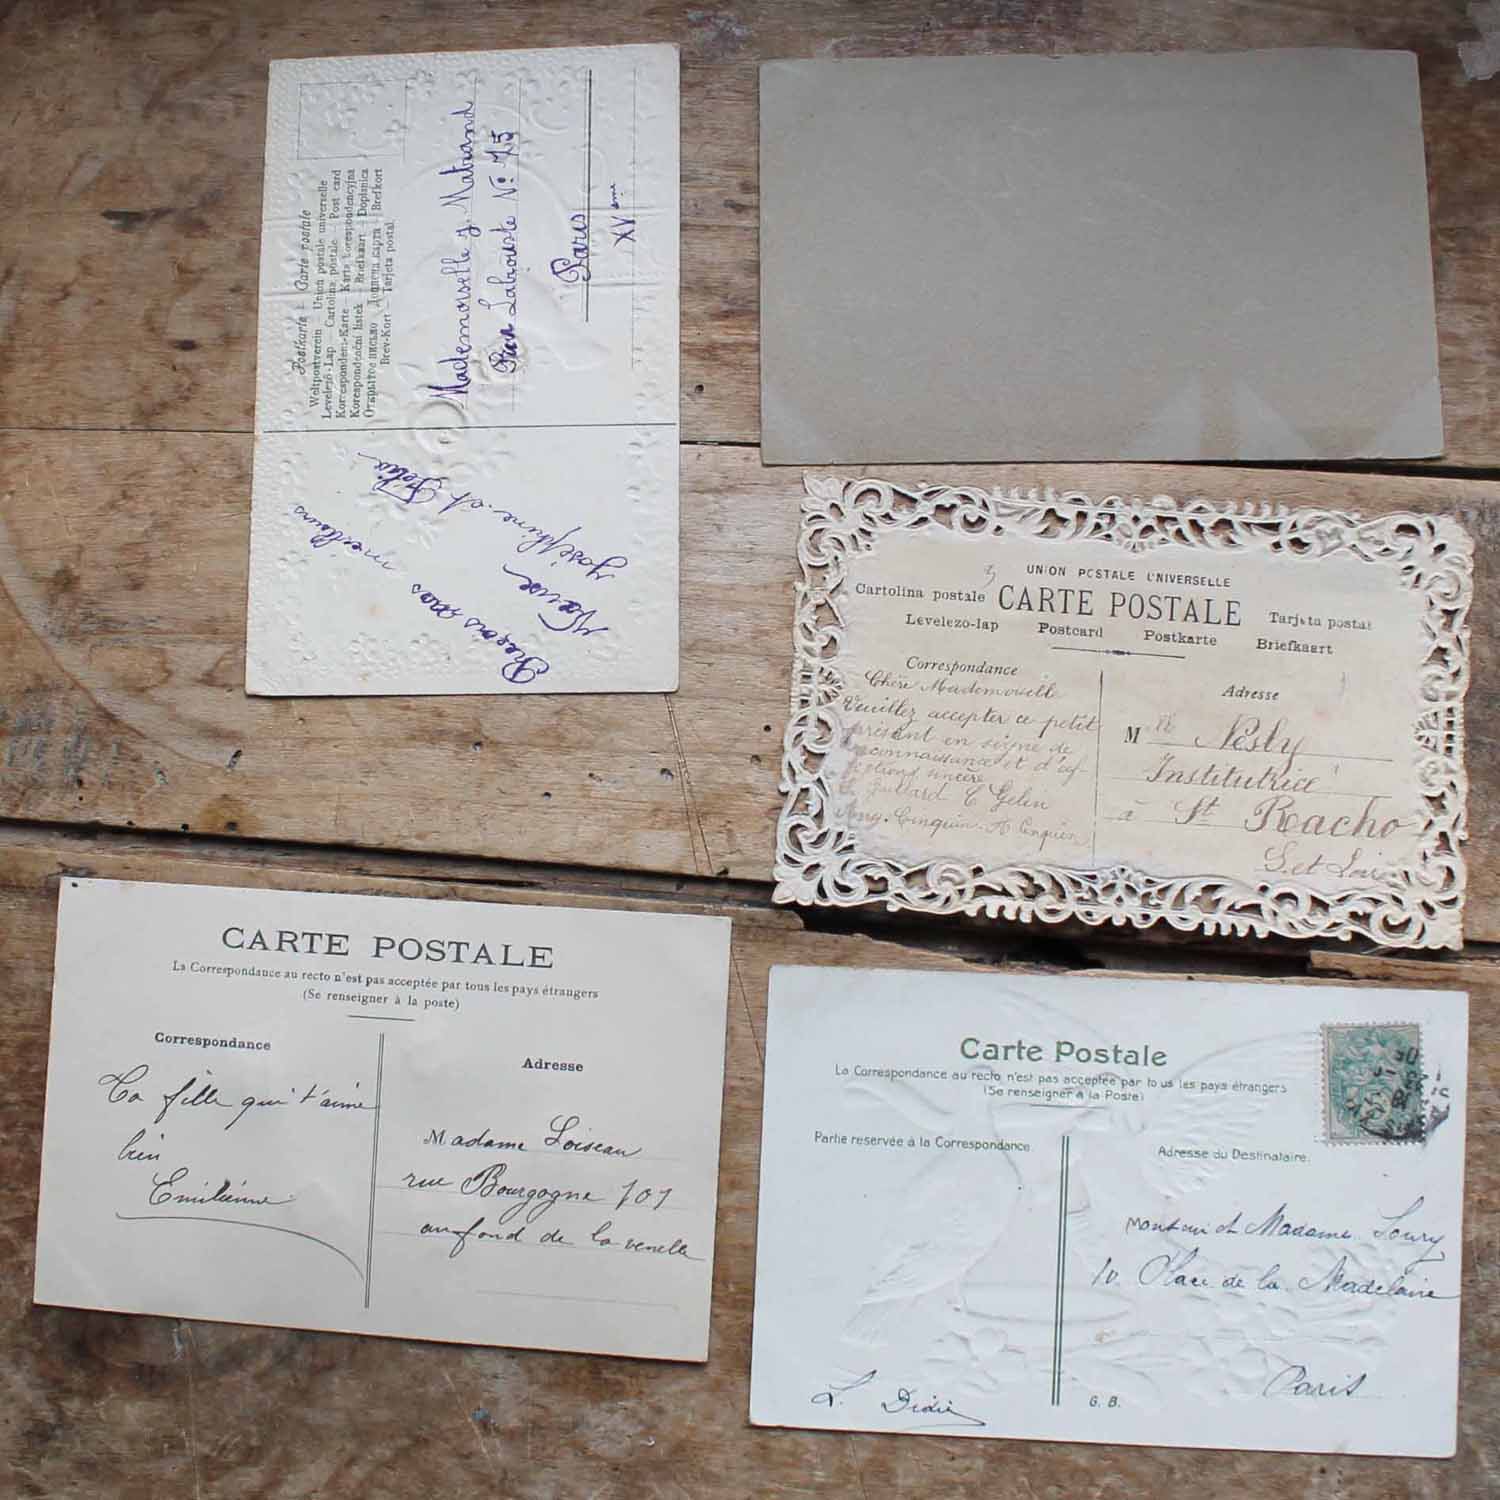 Postkarte – Carte postale
Weltpostverein – Union postale universelle
Levelező-Lap – Cartolina postale – Post card
Korrespondenz-Karte – Karta korespondencyjna
Korespondenční lístek – Briefkaart – Dopisnica
Открытое письмо – Brefkort
Brev-Kort – Tarjeta postal.
Mademoiselle J. Matrand
Rue Labrouste No 75
Paris
XVeme
Reçois mes meilleurs
Joséphine et
UNION POSTALE UNIVERSELLE
Cartolina postale CARTE POSTALE Tarjeta postal
Levelezo-lap Postcard Postkarte Briefkaart
Correspondance
Chère Mademoiselle
Veuillez accepter ce petit
présent en signe de
reconnaissance et d'af-
fections sincère
Guillard C Gelin
Ang. Cinquin - A Cinquin
Adresse
Mlle Nesly
Institutrice
à St Racho
S. et Loire
CARTE POSTALE
La Correspondance au recto n'est pas acceptée par tous les pays étrangers
(Se renseigner à la poste)
Correspondance
Ta fille qui t'aime
bien
Emilienne
Adresse
Madame Loiseau
rue Bourgogne 101
au fond de la venelle
Carte Postale
La Correspondance au recto n'est pas acceptée par tous les pays étrangers
(Se renseigner à la Poste)
Partie reservée à la Correspondance
L. Didier
Adresse du Destinataire.
Monsieur et Madame Loury
10 Place de la Madelaine
Paris
G. B.